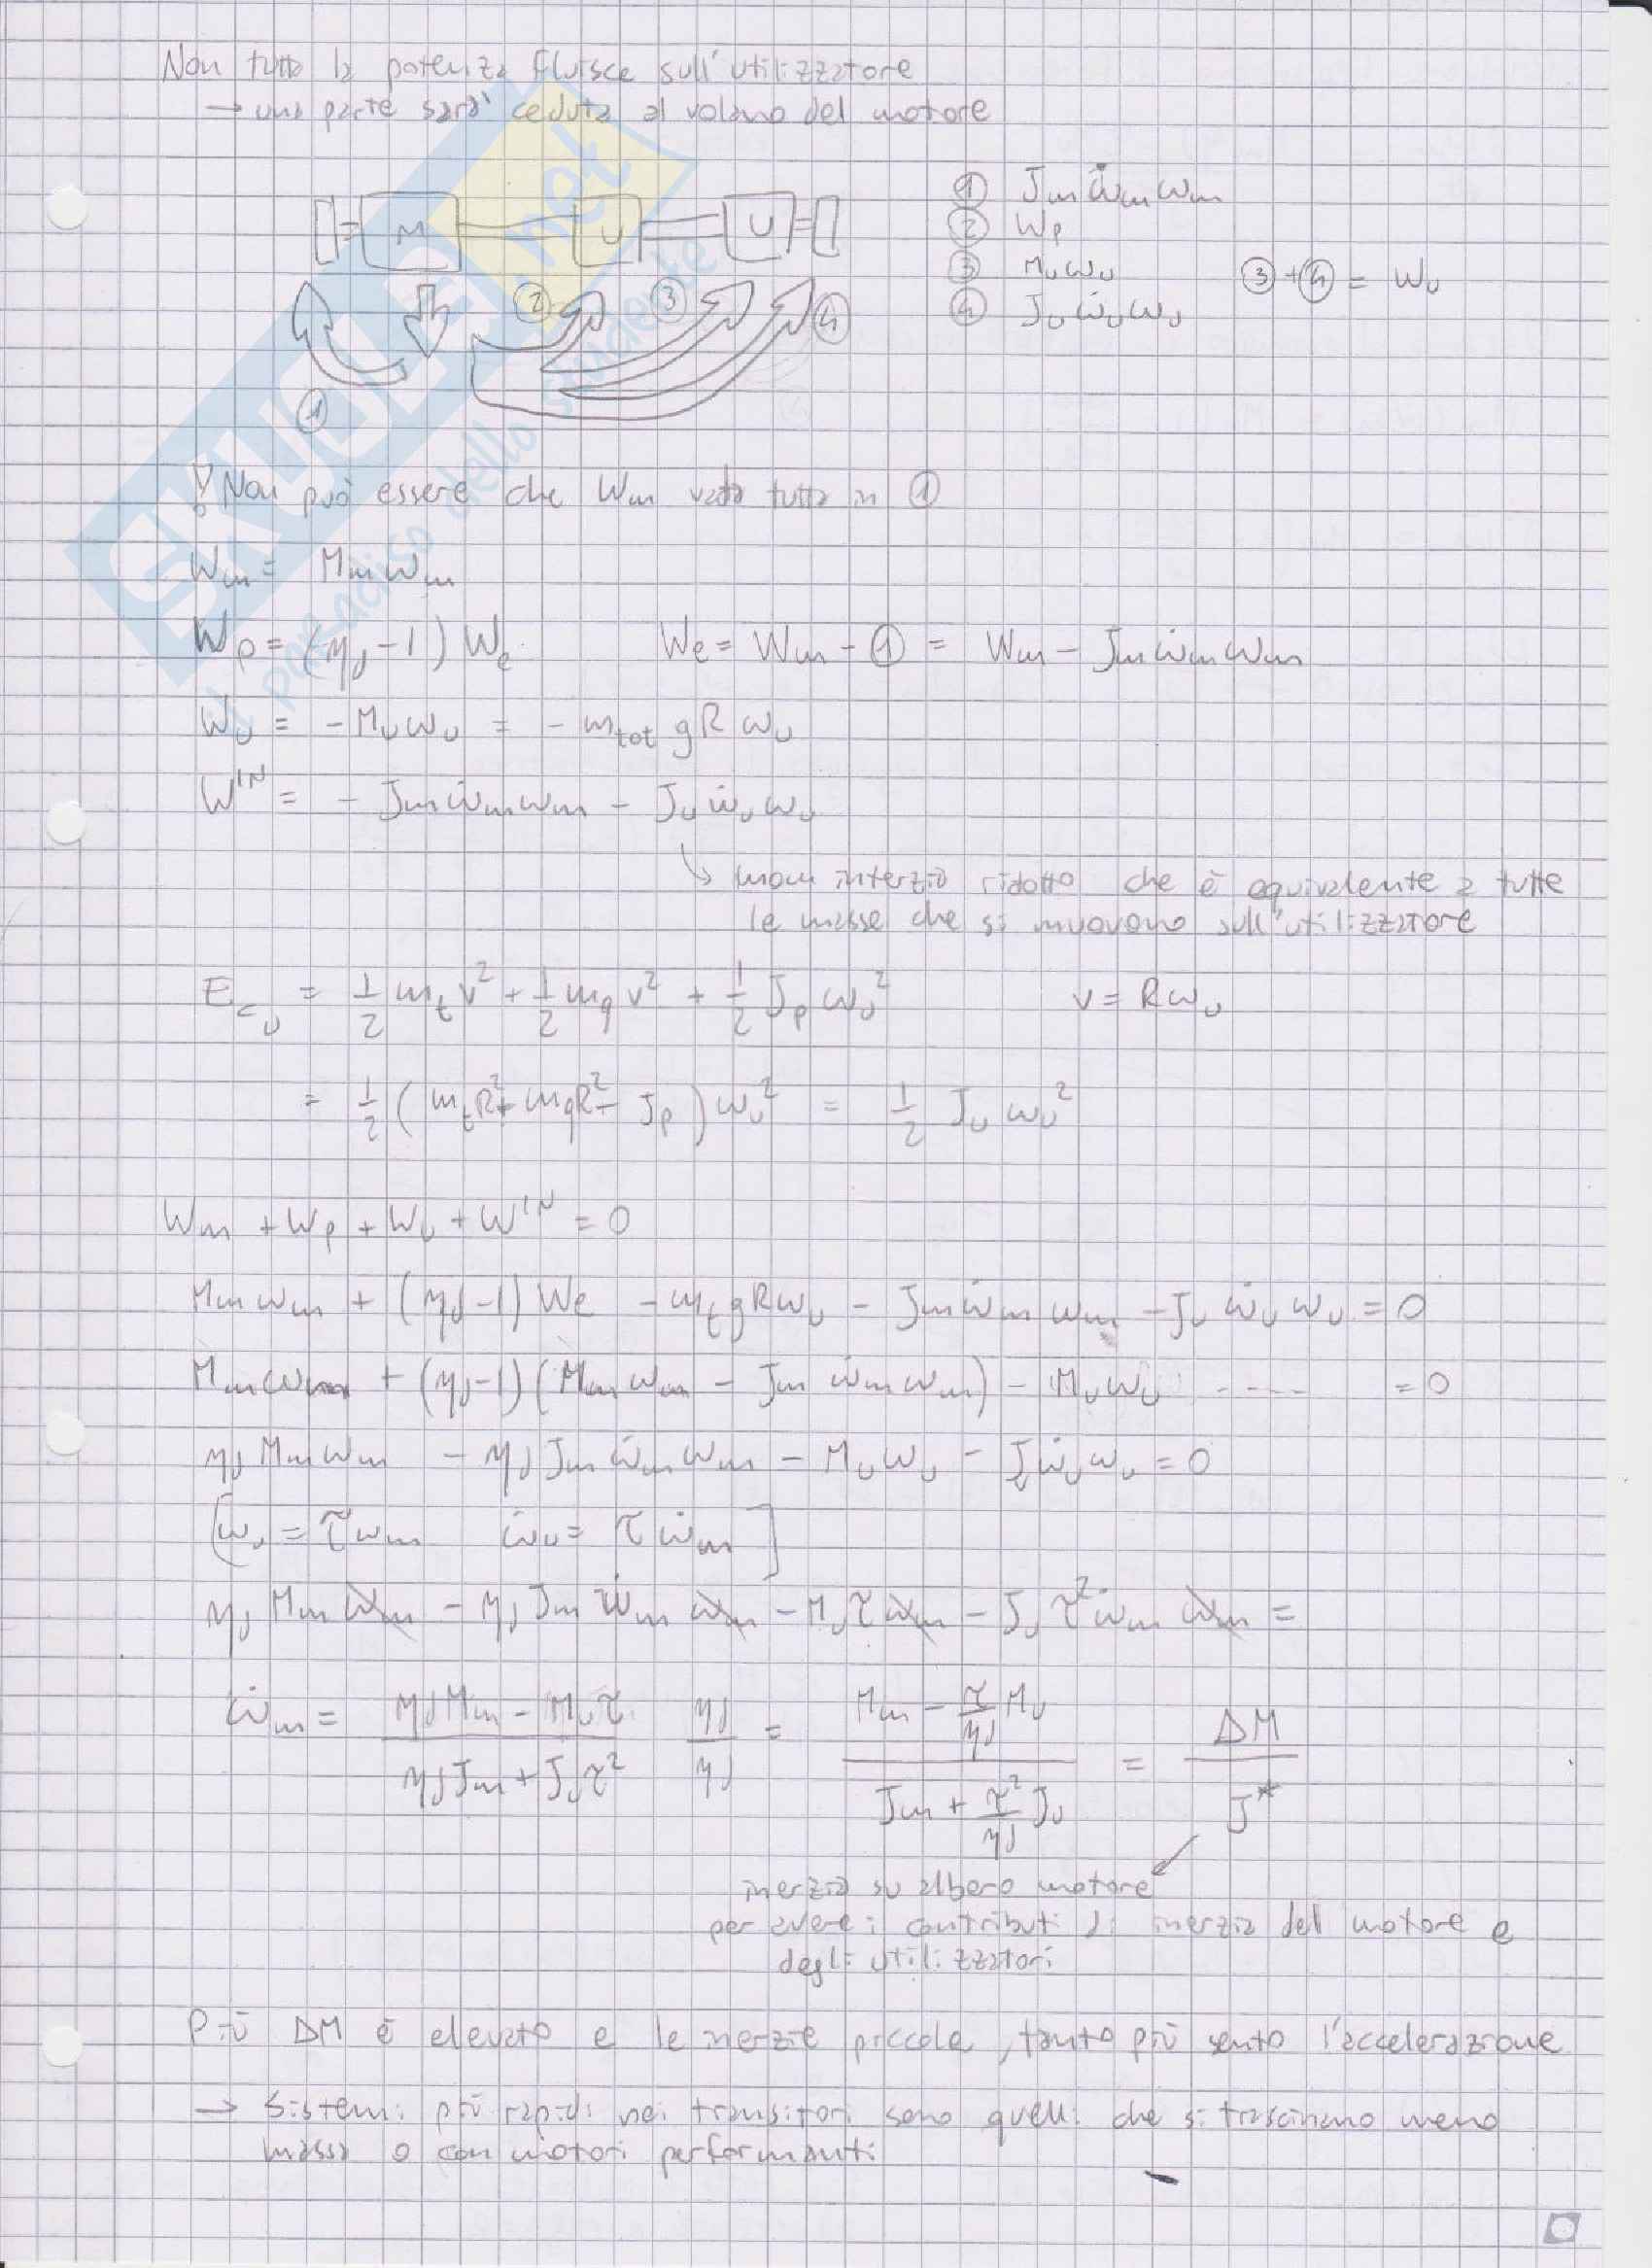 Non tutta la potenza fluisce sull'utilizzatore
→ una parte sarà ceduta al volano del motore
M U U
① Jm ω̇m ωm
② Wp
③ Mu ωu ③+④ = Wu
④ Ju ω̇u ωu
② ③ ④
①
! Non può essere che Wm vada tutta in ①
Wm = Mm ωm
Wp = (ηd - 1) We We = Wm - ① = Wm - Jm ω̇m ωm
Wu = - Mu ωu = - mtot g R ωu
W^IN = - Jm ω̇m ωm - Ju ω̇u ωu
↳ mom inerzia ridotto che è equivalente a tutte
le masse che si muovono sull'utilizzatore
Ecu = 1/2 mt v² + 1/2 mq v² + 1/2 Jp ωu² v = R ωu
= 1/2 (mt R² + mq R² + Jp) ωu² = 1/2 Ju ωu²
Wm + Wp + Wu + W^IN = 0
Mm ωm + (ηd - 1) We - mt g R ωu - Jm ω̇m ωm - Ju ω̇u ωu = 0
Mm ωm + (ηd - 1)(Mm ωm - Jm ω̇m ωm) - Mu ωu ---- = 0
ηd Mm ωm - ηd Jm ω̇m ωm - Mu ωu - Ju ω̇u ωu = 0
[ωu = τ ωm ω̇u = τ ω̇m]
ηd Mm ωm - ηd Jm ω̇m ωm - Mu τ ωm - Ju τ² ω̇m ωm =
ω̇m = (ηd Mm - Mu τ)/(ηd Jm + Ju τ²) ηd/ηd = (Mm - τ/ηd Mu)/(Jm + τ²/ηd Ju) = ΔM/J*
inerzia su albero motore
per avere i contributi di inerzia del motore e
degli utilizzatori
Più ΔM è elevato e le inerzie piccole, tanto più sento l'accelerazione
→ Sistemi più rapidi nei transitori sono quelli che si trascinano meno
massa o con motori performanti
SKUOLA.net
il paradiso dello studente